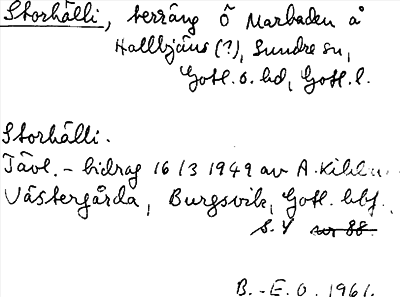 Storhälli, terräng Ö Marbaden å
Hallbjäns (?), Sundre sn,
Gotl. s. hd, Gotl. l.
Storhälli.
Tävl. - bidrag 16/3 1949 av A. Kihlm.
Västergårda, Burgsvik, Gotl. bbf.
s. 4 nr 88.
B. - E. O. 1961.